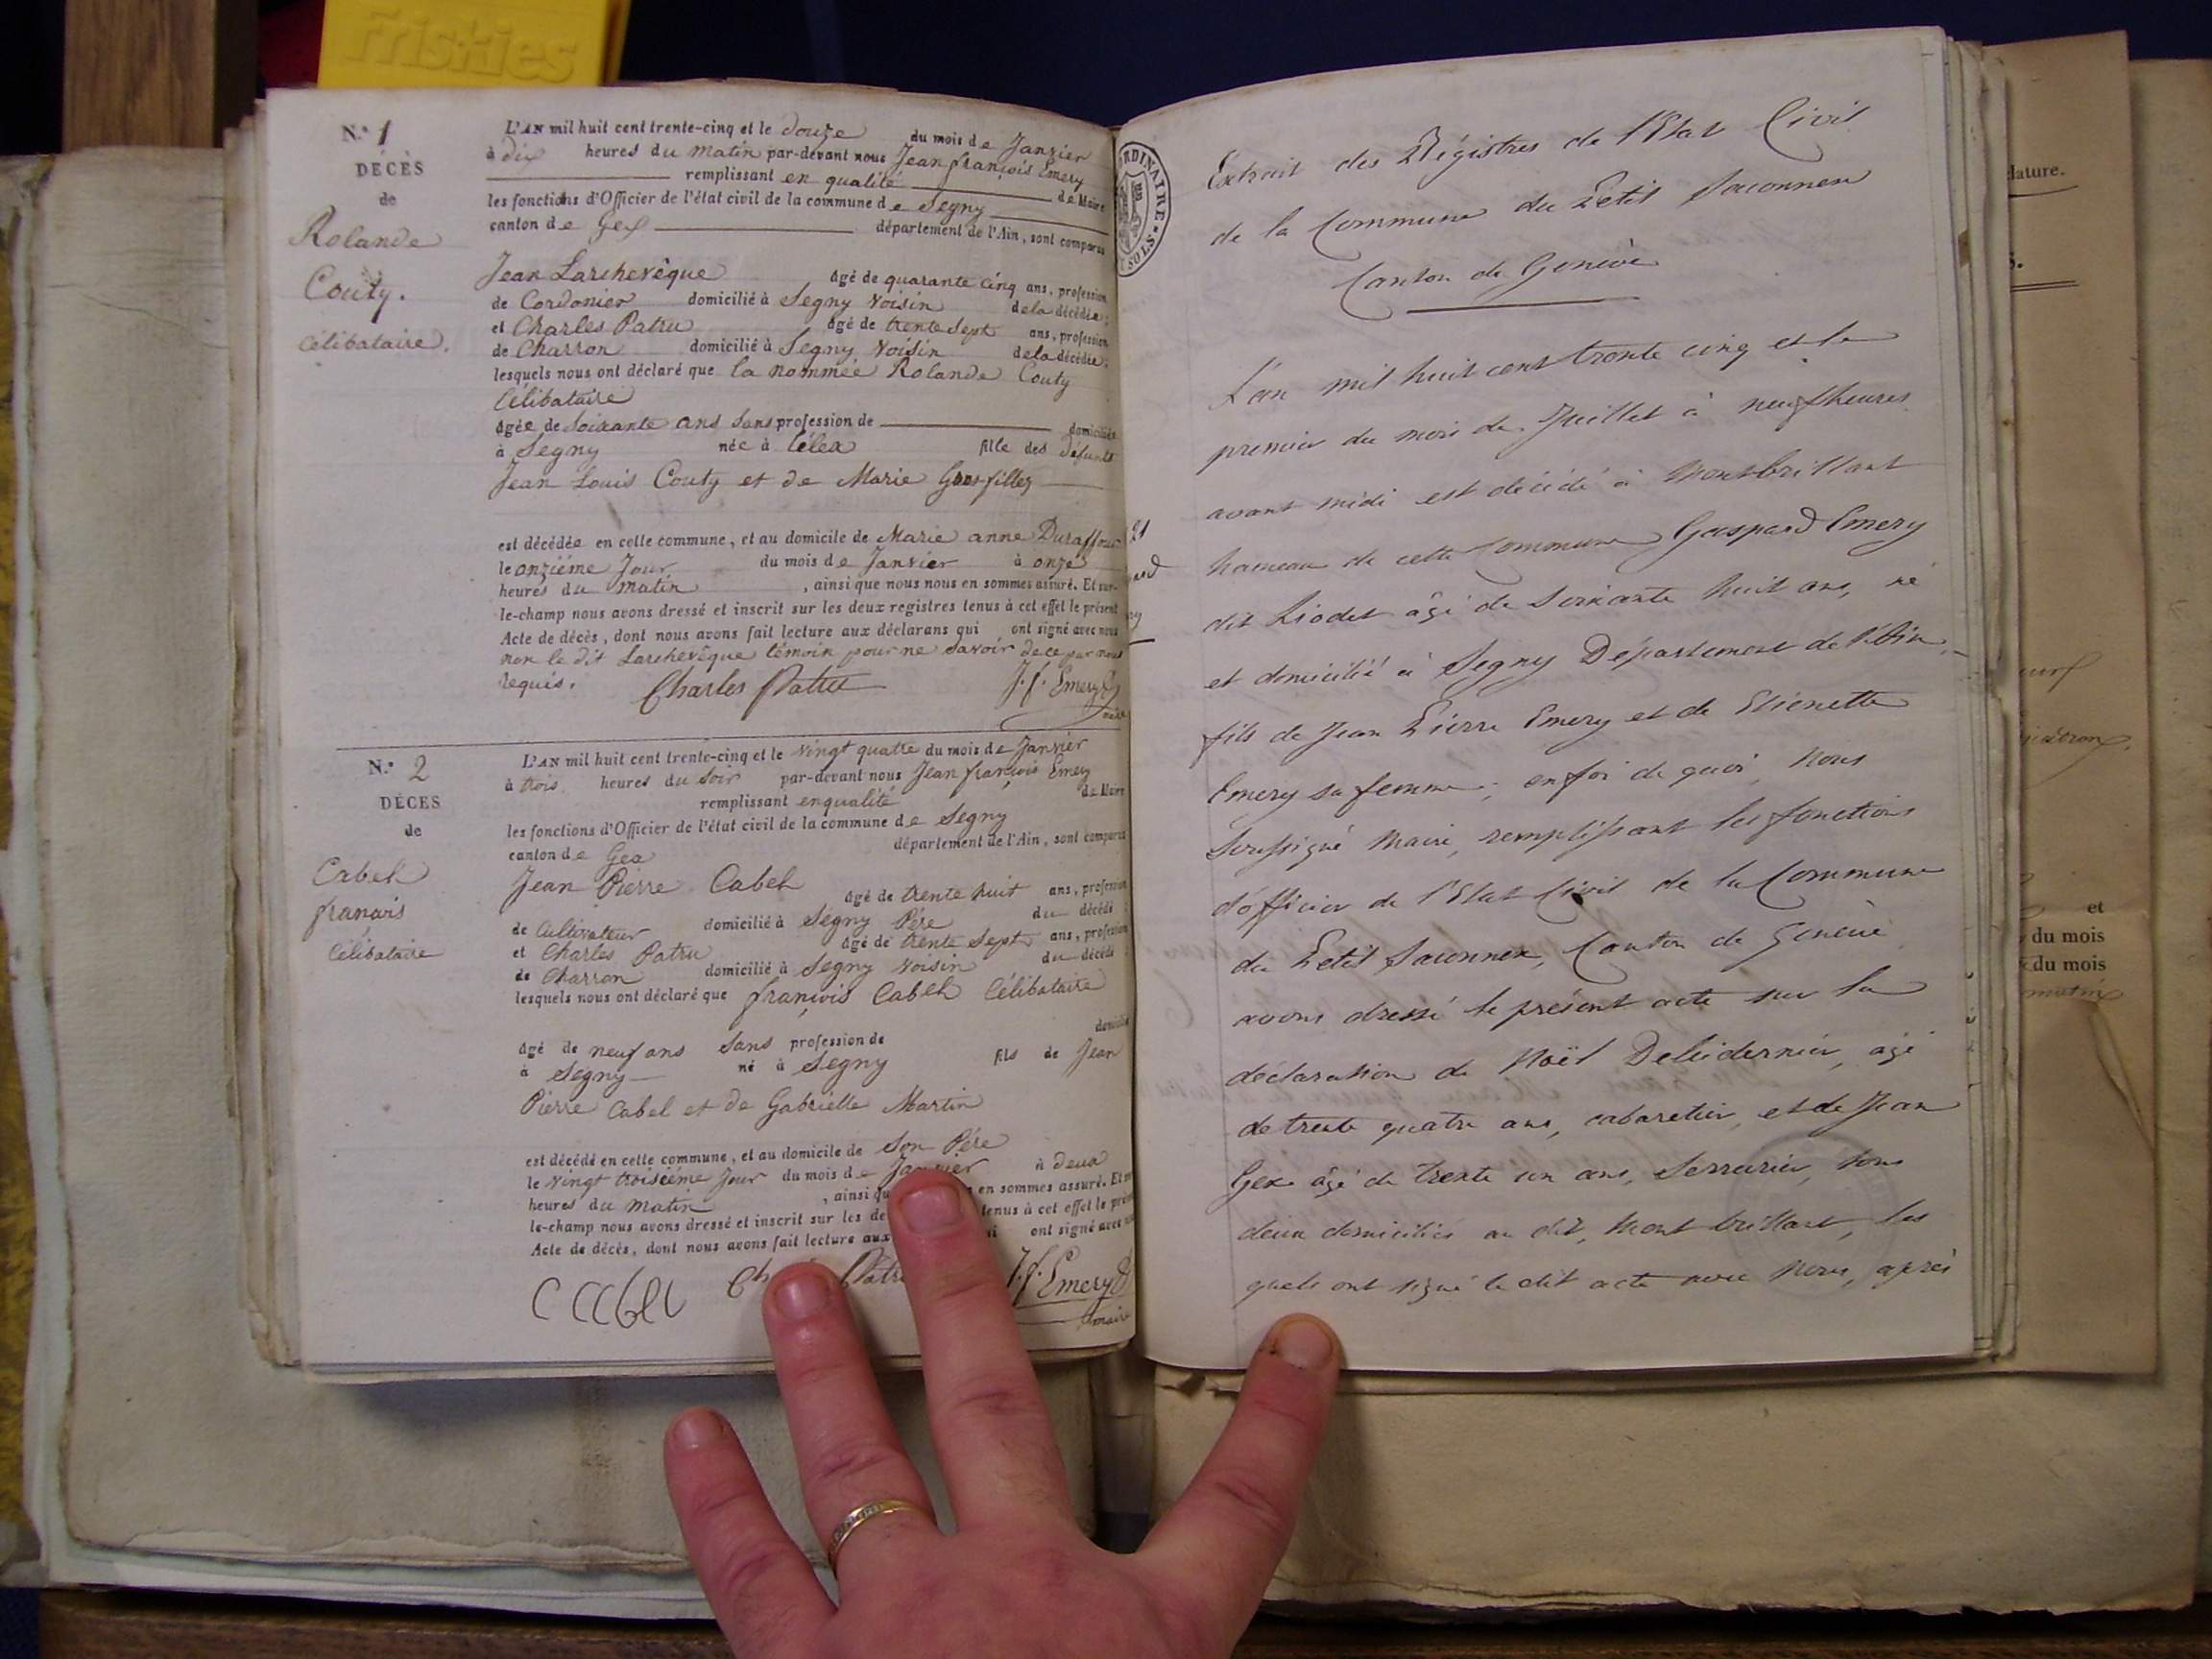 Friskies
N.º 1
DÉCÈS
de
Rolande
Couty.
Célibataire.
L'AN mil huit cent trente-cinq et le douze du mois de Janvier
à dix heures du matin par-devant nous Jean françois Emery
remplissant en qualité de Maire
les fonctions d'Officier de l'état civil de la commune de Segny
canton de Gex département de l'Ain, sont comparus
Jean Larchevêque agé de quarante cinq ans, profession
de Cordonier domicilié à Segny Voisin de la décédée;
et Charles Patru agé de trente Sept ans, profession
de Charron domicilié à Segny Voisin de la décédée;
lesquels nous ont déclaré que la nommée Rolande Couty
Célibataire
agée de Soixante ans Sans profession de domiciliée
à Segny née à Lélex fille des défunts
Jean Louis Couty et de Marie Grosfilley
est décédée en cette commune, et au domicile de Marie anne Duraffour
le onzième Jour du mois de Janvier à onze
heures du matin, ainsi que nous nous en sommes assuré. Et sur-
le-champ nous avons dressé et inscrit sur les deux registres tenus à cet effet le présent
Acte de décès, dont nous avons fait lecture aux déclarans qui ont signé avec nous
non le dit Larchevêque témoin pour ne Savoir de ce par nous
requis. Charles Patru J. f. Emery
maire
N.º 2
DÉCES
de
Cabel
françois
Célibataire
L'AN mil huit cent trente-cinq et le vingt quatre du mois de Janvier
à trois heures du Soir par-devant nous Jean françois Emery
remplissant en qualité de Maire
les fonctions d'Officier de l'état civil de la commune de Segny
canton de Gex département de l'Ain, sont comparus
Jean Pierre Cabel agé de trente huit ans, profession
de Cultivateur domicilié à Segny Père du décédé;
et Charles Patru agé de trente Sept ans, profession
de Charron domicilié à Segny Voisin du décédé;
lesquels nous ont déclaré que françois Cabel Célibataire
agé de neuf ans Sans profession de domicilié
à Segny né à Segny fils de Jean
Pierre Cabel et de Gabrielle Martin
est décédé en cette commune, et au domicile de Son Père
le vingt troisième Jour du mois de Janvier à deux
heures du matin, ainsi en sommes assuré. Et
le-champ nous avons dressé et inscrit sur les tenus à cet effet le
Acte de décès, dont nous avons fait lecture aux ont signé avec
Patru J. f. Emery
maire
ORDINAIRE
SOLS
Extrait des Régistres de l'Etat Civil
de la Commune du Petit Saconnex
Canton de Genève
L'an mil huit cent trente cinq et le
premier du mois de Juillet à neuf heures
avant midi est décédé à Montbrillant
hameau de cette Commune Gaspard Emery
dit Liodet âgé de Soixante huit ans, né
et domicilié à Segny Département de l'Ain,
fils de Jean Pierre Emery et de Etienette
Emery sa femme; en foi de quoi, Nous
Soussigné Maire, remplissant les fonctions
d'officier de l'Etat Civil de la Commune
du Petit Saconnex, Canton de Genève
avons dressé le présent acte sur la
déclaration de Noël agé
de trente quatre ans, cabaretier, et de Jean
Gex âgé de trente un ans, Serrurier, tous
deux domiciliés au dit, Mont brillant, les
quels ont signé le dit acte avec Nous, après
et
du mois
du mois
matin